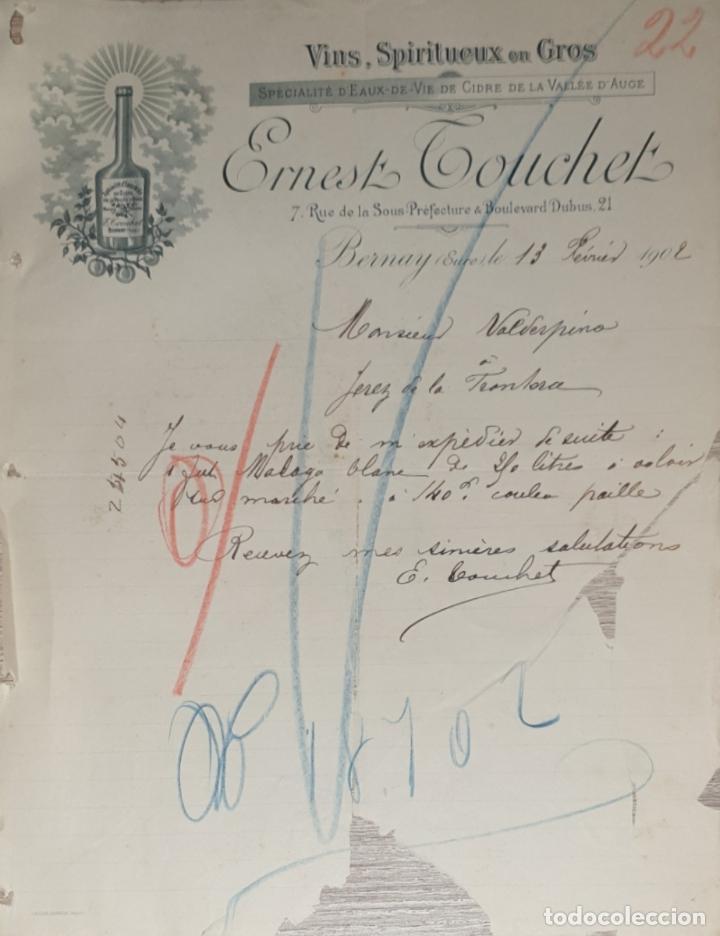 22
Vins, Spiritueux en Gros
Spécialité d'Eaux-de-Vie de Cidre de la Vallée d'Auge
Ernest Touchet
7, Rue de la Sous-Préfecture & Boulevard Dubus, 21
Bernay (Eure), le 13 Février 1902
Monsieur Valdespino
à
Jerez de la Frontera
Je vous prie de m'expédier de suite :
1 fut Malaga blanc de 250 litres à valoir
sur marché à 140f couleur paille
Recevez mes sincères salutations
E. Touchet
24504
todocoleccion.net